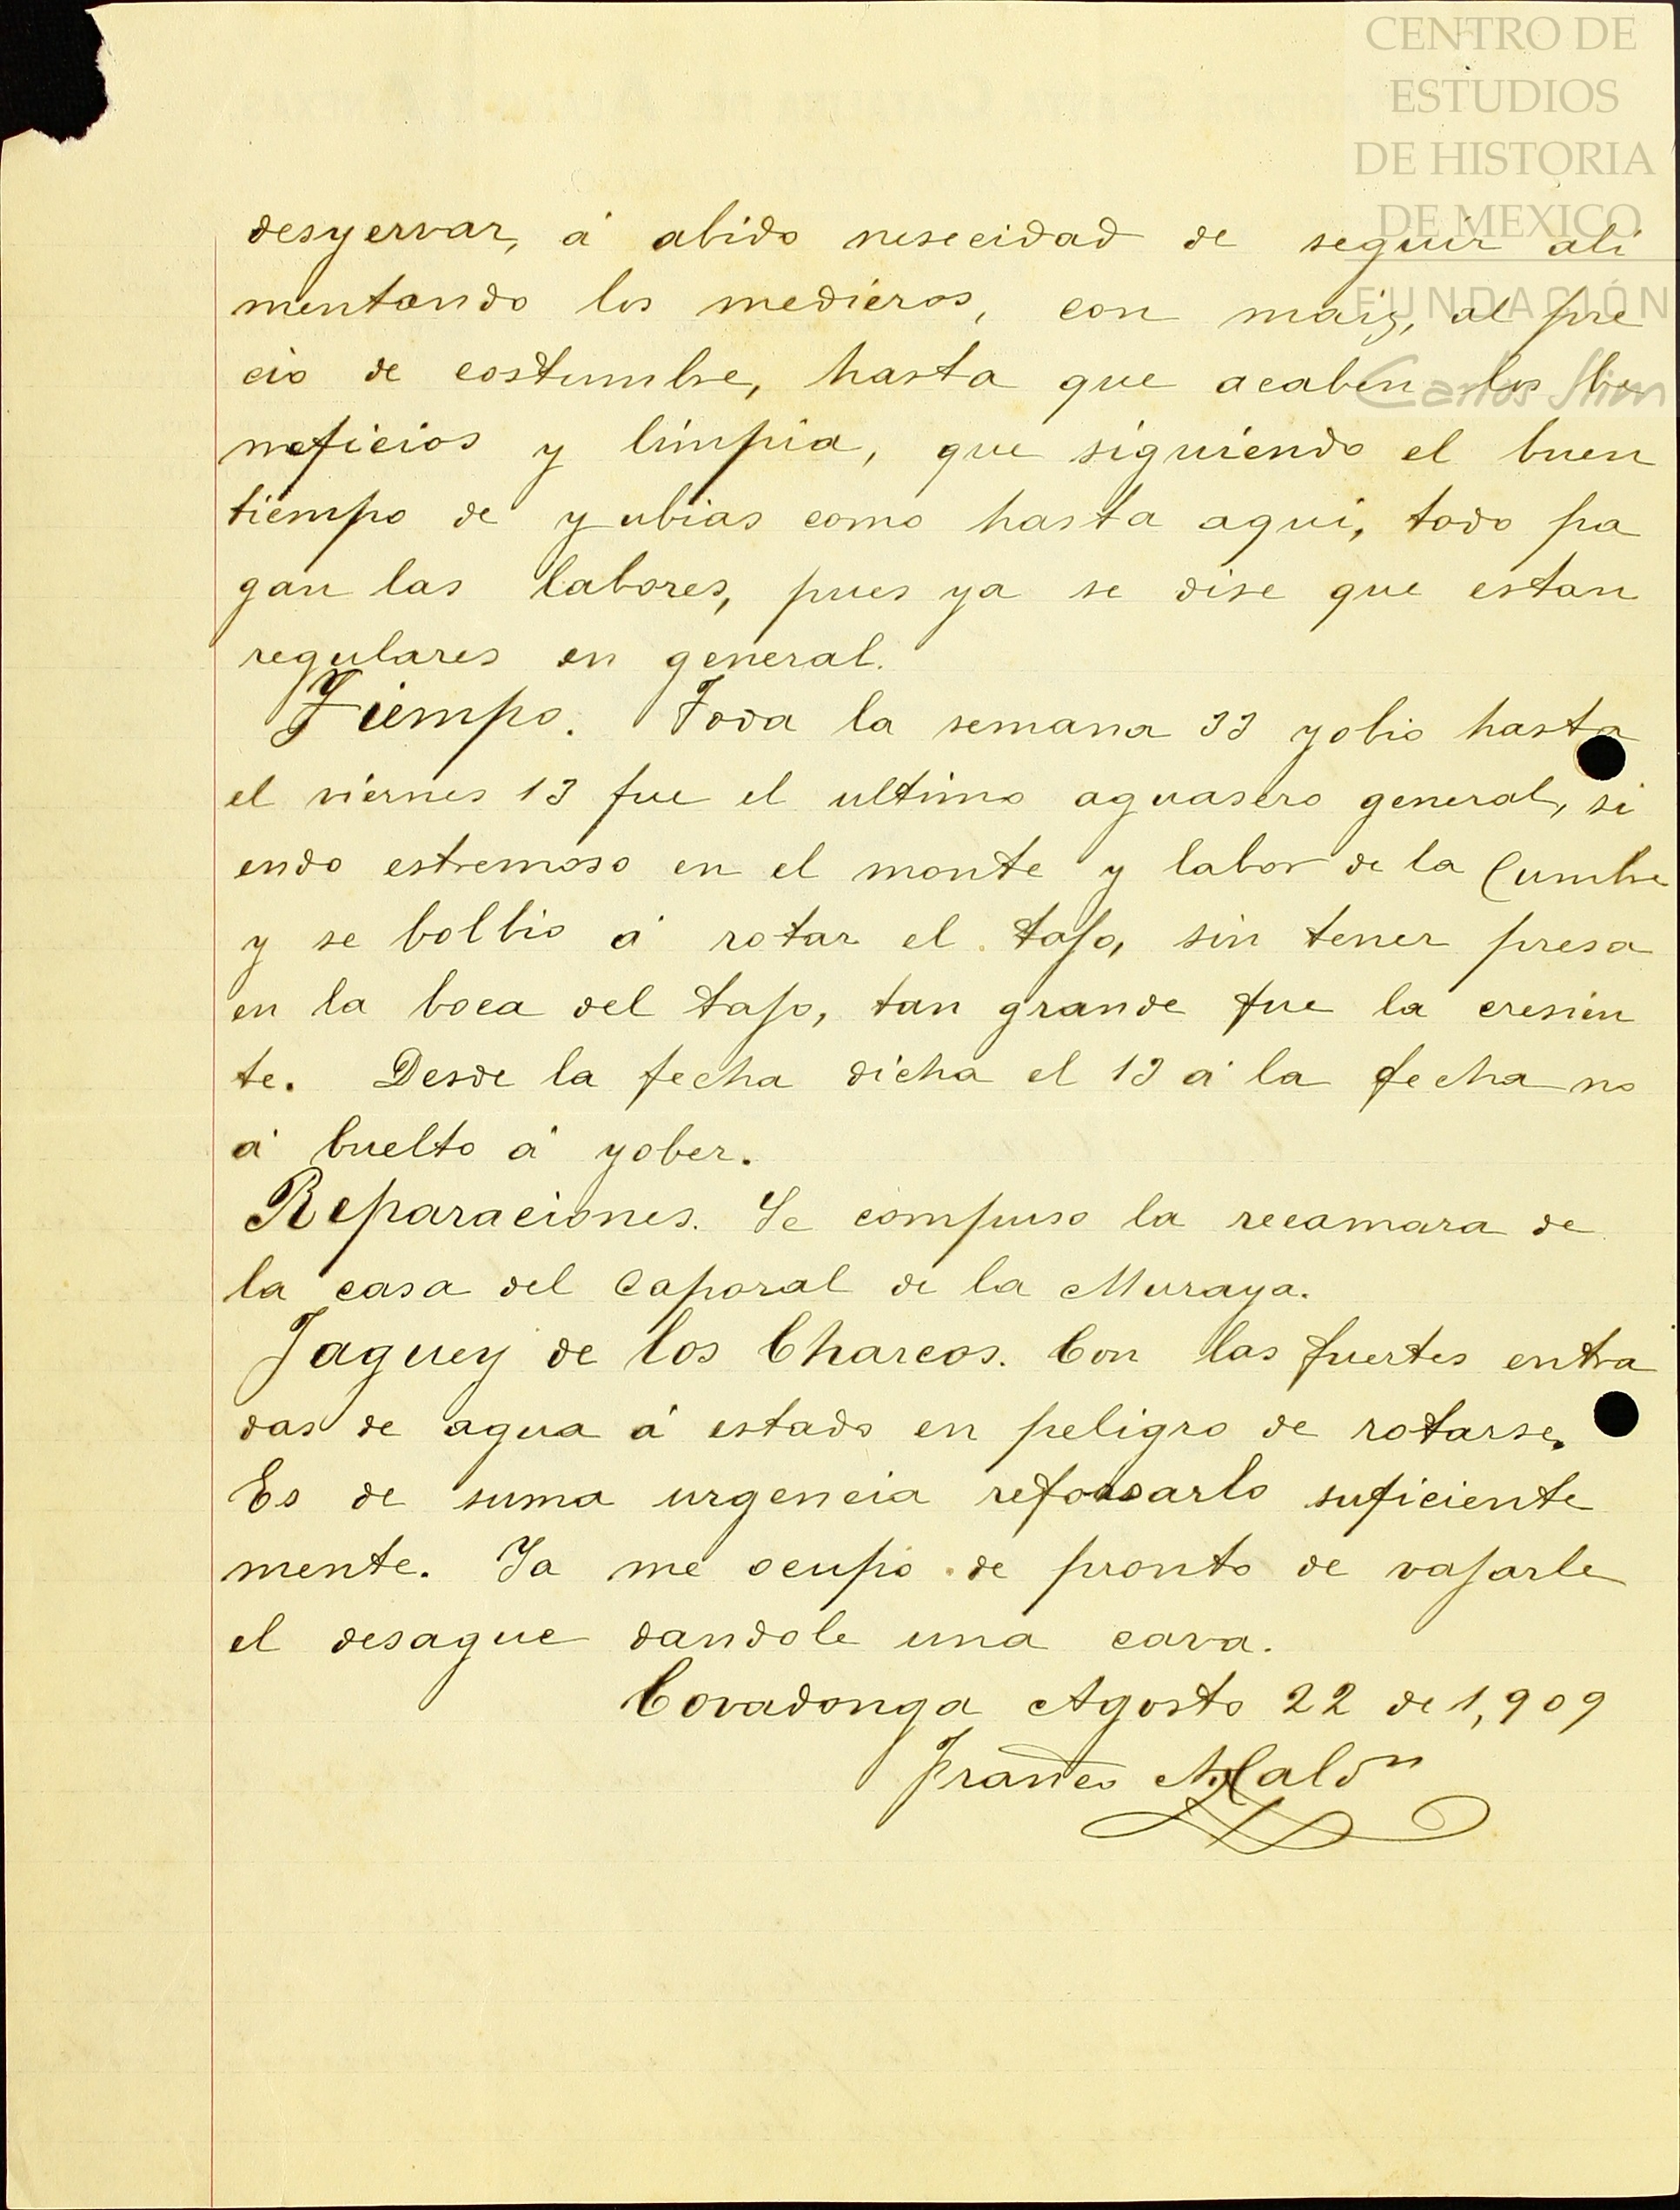 CENTRO DE
ESTUDIOS
DE HISTORIA
DE MEXICO
FUNDACIÓN
Carlos Slim
desyervar, á abido nesecidad de seguir ali
mentando los medieros, con maiz, al pre
cio de costumbre, hasta que acaben los be
neficios y limpia, que siguiendo el buen
tiempo de yubias como hasta aqui, todo pa
gan las labores, pues ya se dise que estan
regulares en general.
Tiempo. Toda la semana 33 yobio hasta
el viernes 13 fue el ultimo aguasero general, si
endo estremoso en el monte y labor de la Cumbre
y se bolbio á rotar el tajo, sin tener presa
en la boca del tajo, tan grande fue la cresien
te. Desde la fecha dicha el 13 á la fecha no
á buelto á yober.
Reparaciones. Se compuso la recamara de
la casa del Caporal de la Muraya.
Jaguey de los Charcos. Con las fuertes entra
das de agua á estado en peligro de rotarse.
Es de suma urgencia reforsarlo suficiente
mente. Ya me ocupo de pronto de vajarle
el desague dandole una cava.
Covadonga Agosto 22 de 1,909
Franco Maldn